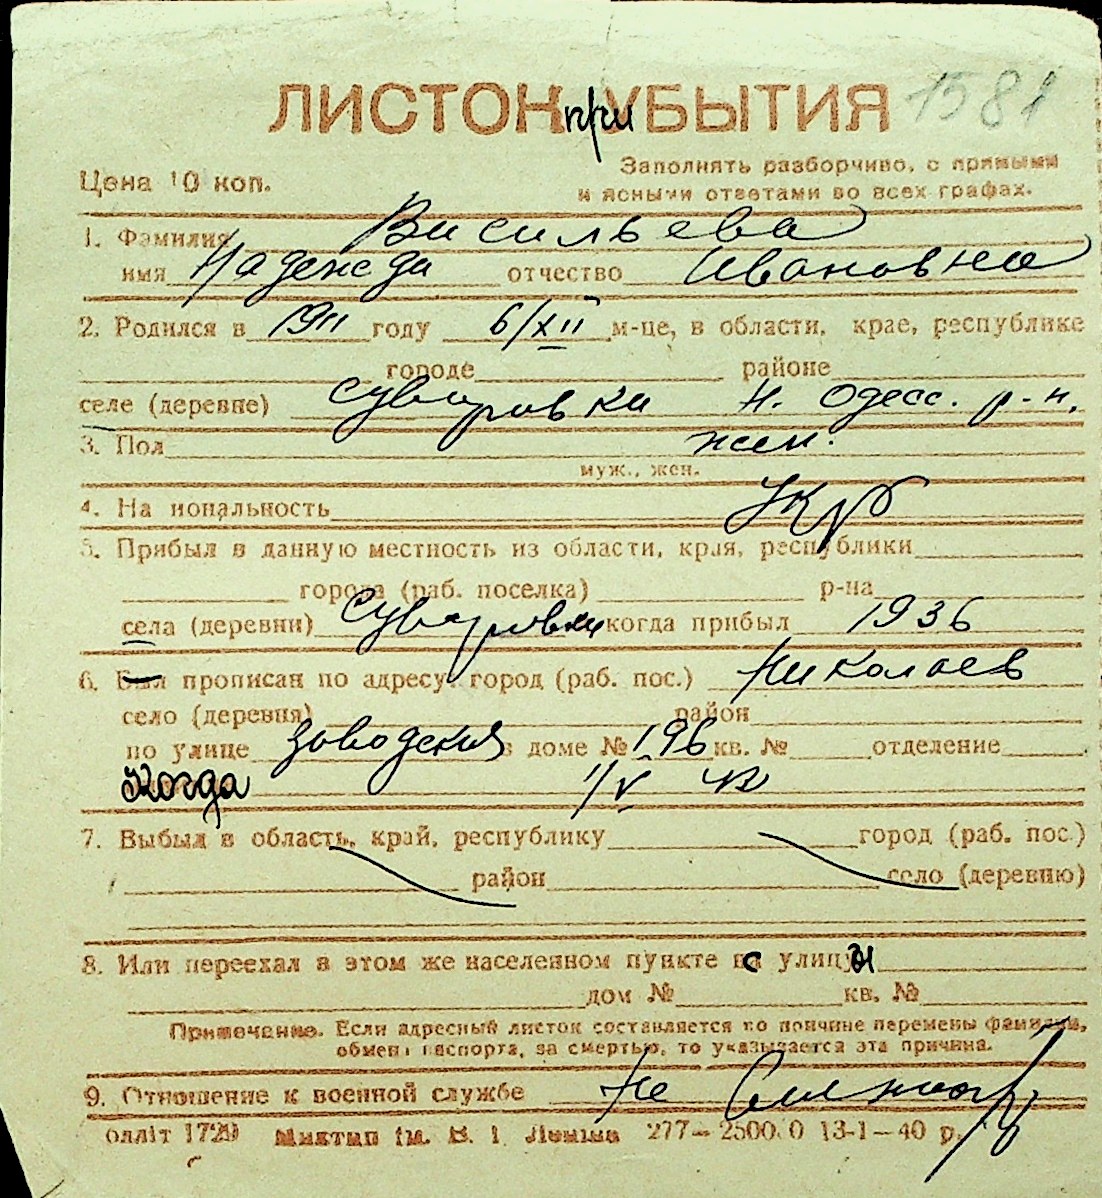 1581
ЛИСТОК при УБЫТИЯ
Цена 10 коп.
Заполнять разборчиво, с прямыми
и ясными ответами во всех графах.
1. Фамилия Васильева
имя Надежда отчество Ивановна
2. Родился в 1911 году 6/XII м-це, в области, крае, республике
городе районе
селе (деревне) Суворовка Н. Одесс. р-н.
3. Пол жен.
муж., жен.
4. На иональность Укр
5. Прибыл в данную местность из области, края, республики
города (раб. поселка) р-на
села (деревни) Суворовки когда прибыл 1936
6. Был прописан по адресу: город (раб. пос.) Николаев
село (деревня) район
по улице Заводская в доме № 196 кв. № отделение
Когда 1/V
7. Выбыл в область, край, республику город (раб. пос.)
район село (деревню)
8. Или переехал в этом же населенном пункте с улицы
дом № кв. №
Примечание. Если адресный листок составляется по причине перемены фамилии,
обмена паспорта, за смертью, то указывается эта причина.
9. Отношение к военной службе Не
олліт 1729 Миктип ім. В. І. Леніна 277—2500 0 13-1—40 р.